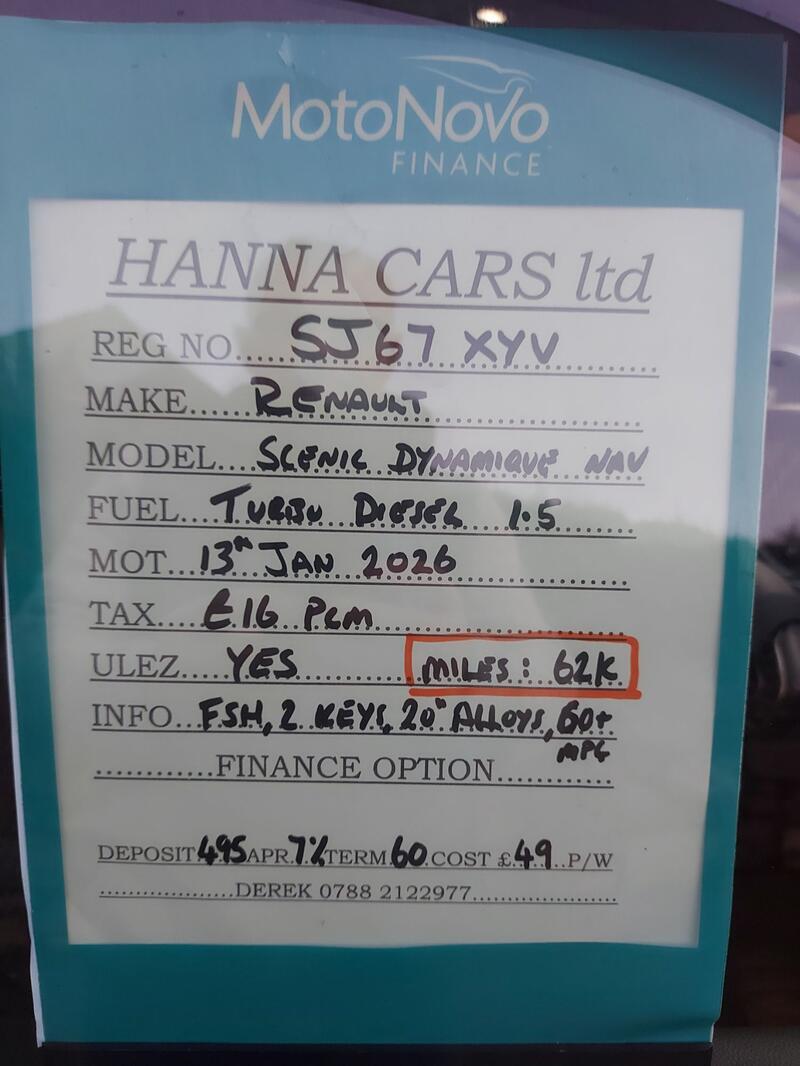 MotoNovo
FINANCE
HANNA CARS ltd
REG NO.....SJ67 XYV
MAKE.....RENAULT
MODEL....SCENIC DYNAMIQUE NAV
FUEL....TURBO DIESEL 1.5
MOT...13th JAN 2026
TAX....£16 PCM
ULEZ....YES MILES: 62K
INFO...FSH, 2 KEYS, 20" ALLOYS, 60+
MPG
............FINANCE OPTION............
DEPOSIT 495 APR 7% TERM 60 COST £49 P/W
..................DEREK 0788 2122977....................